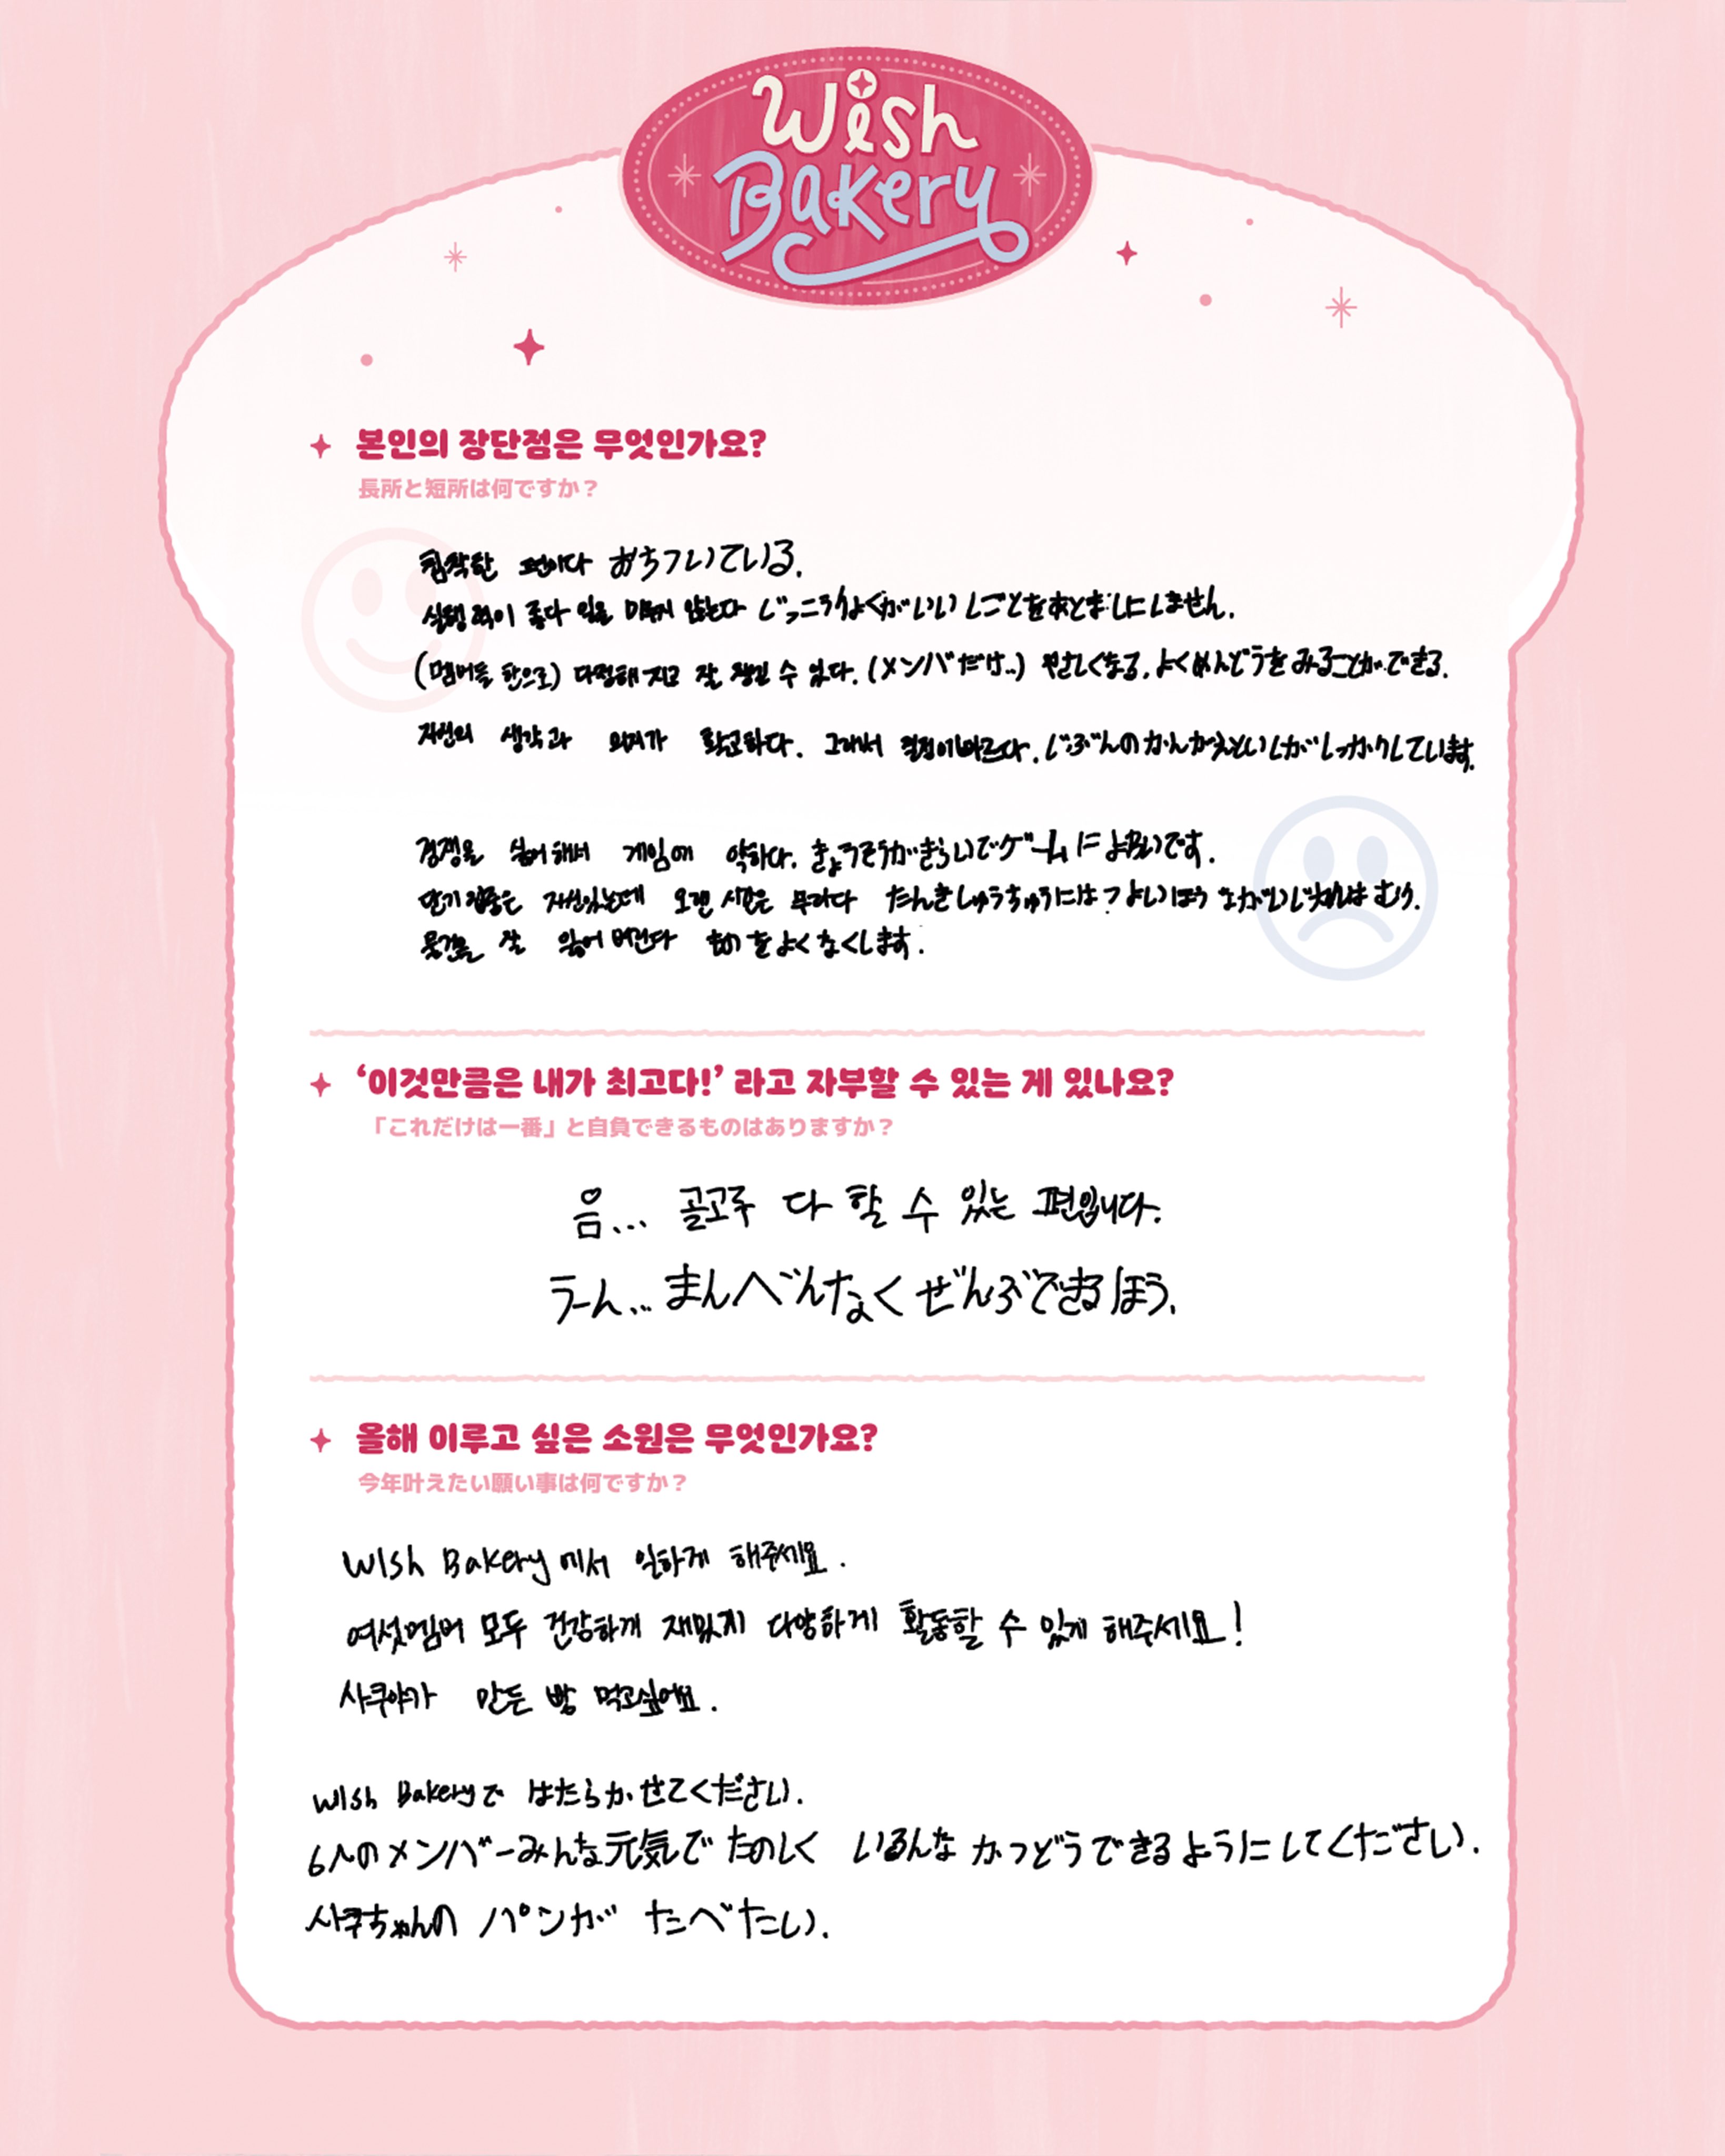 Wish
Bakery
본인의 장단점은 무엇인가요?
長所と短所は何ですか？
침착한 편이다 おちついている.
실행력이 좋다 일을 미루지 않는다 じっこうりょくがいい しごとをあとまわしにしません.
(멤버들 한으로) 다정해지고 잘 챙길 수 있다. (メンバだけ..) やさしくなる. よくめんどうをみることができる.
자신의 생각과 의지가 확고하다. 그래서 결정이 빠르다. じぶんのかんがえといしがしっかりしています.
경쟁을 싫어해서 게임에 약하다. きょうそうがきらいでゲームによわいです.
단기 집중은 자신있는데 오랜 시간은 무리다 たんきしゅうちゅうにはつよいほう ながいじかんはむり.
물건을 잘 잃어버린다 ものをよくなくします.
‘이것만큼은 내가 최고다!’ 라고 자부할 수 있는 게 있나요?
「これだけは一番」と自負できるものはありますか？
음... 골고루 다 할 수 있는 편입니다.
うーん... まんべんなくぜんぶできるほう.
올해 이루고 싶은 소원은 무엇인가요?
今年叶えたい願い事は何ですか？
Wish Bakery에서 일하게 해주세요.
여섯멤버 모두 건강하게 재밌게 다양하게 활동할 수 있게 해주세요!
사쿠야가 만든 빵 먹고싶어요.
Wish Bakeryで はたらかせてください.
6人のメンバーみんな元気で たのしく いろんな かつどうできるようにしてください.
사쿠ちゃんの パンが たべたい.